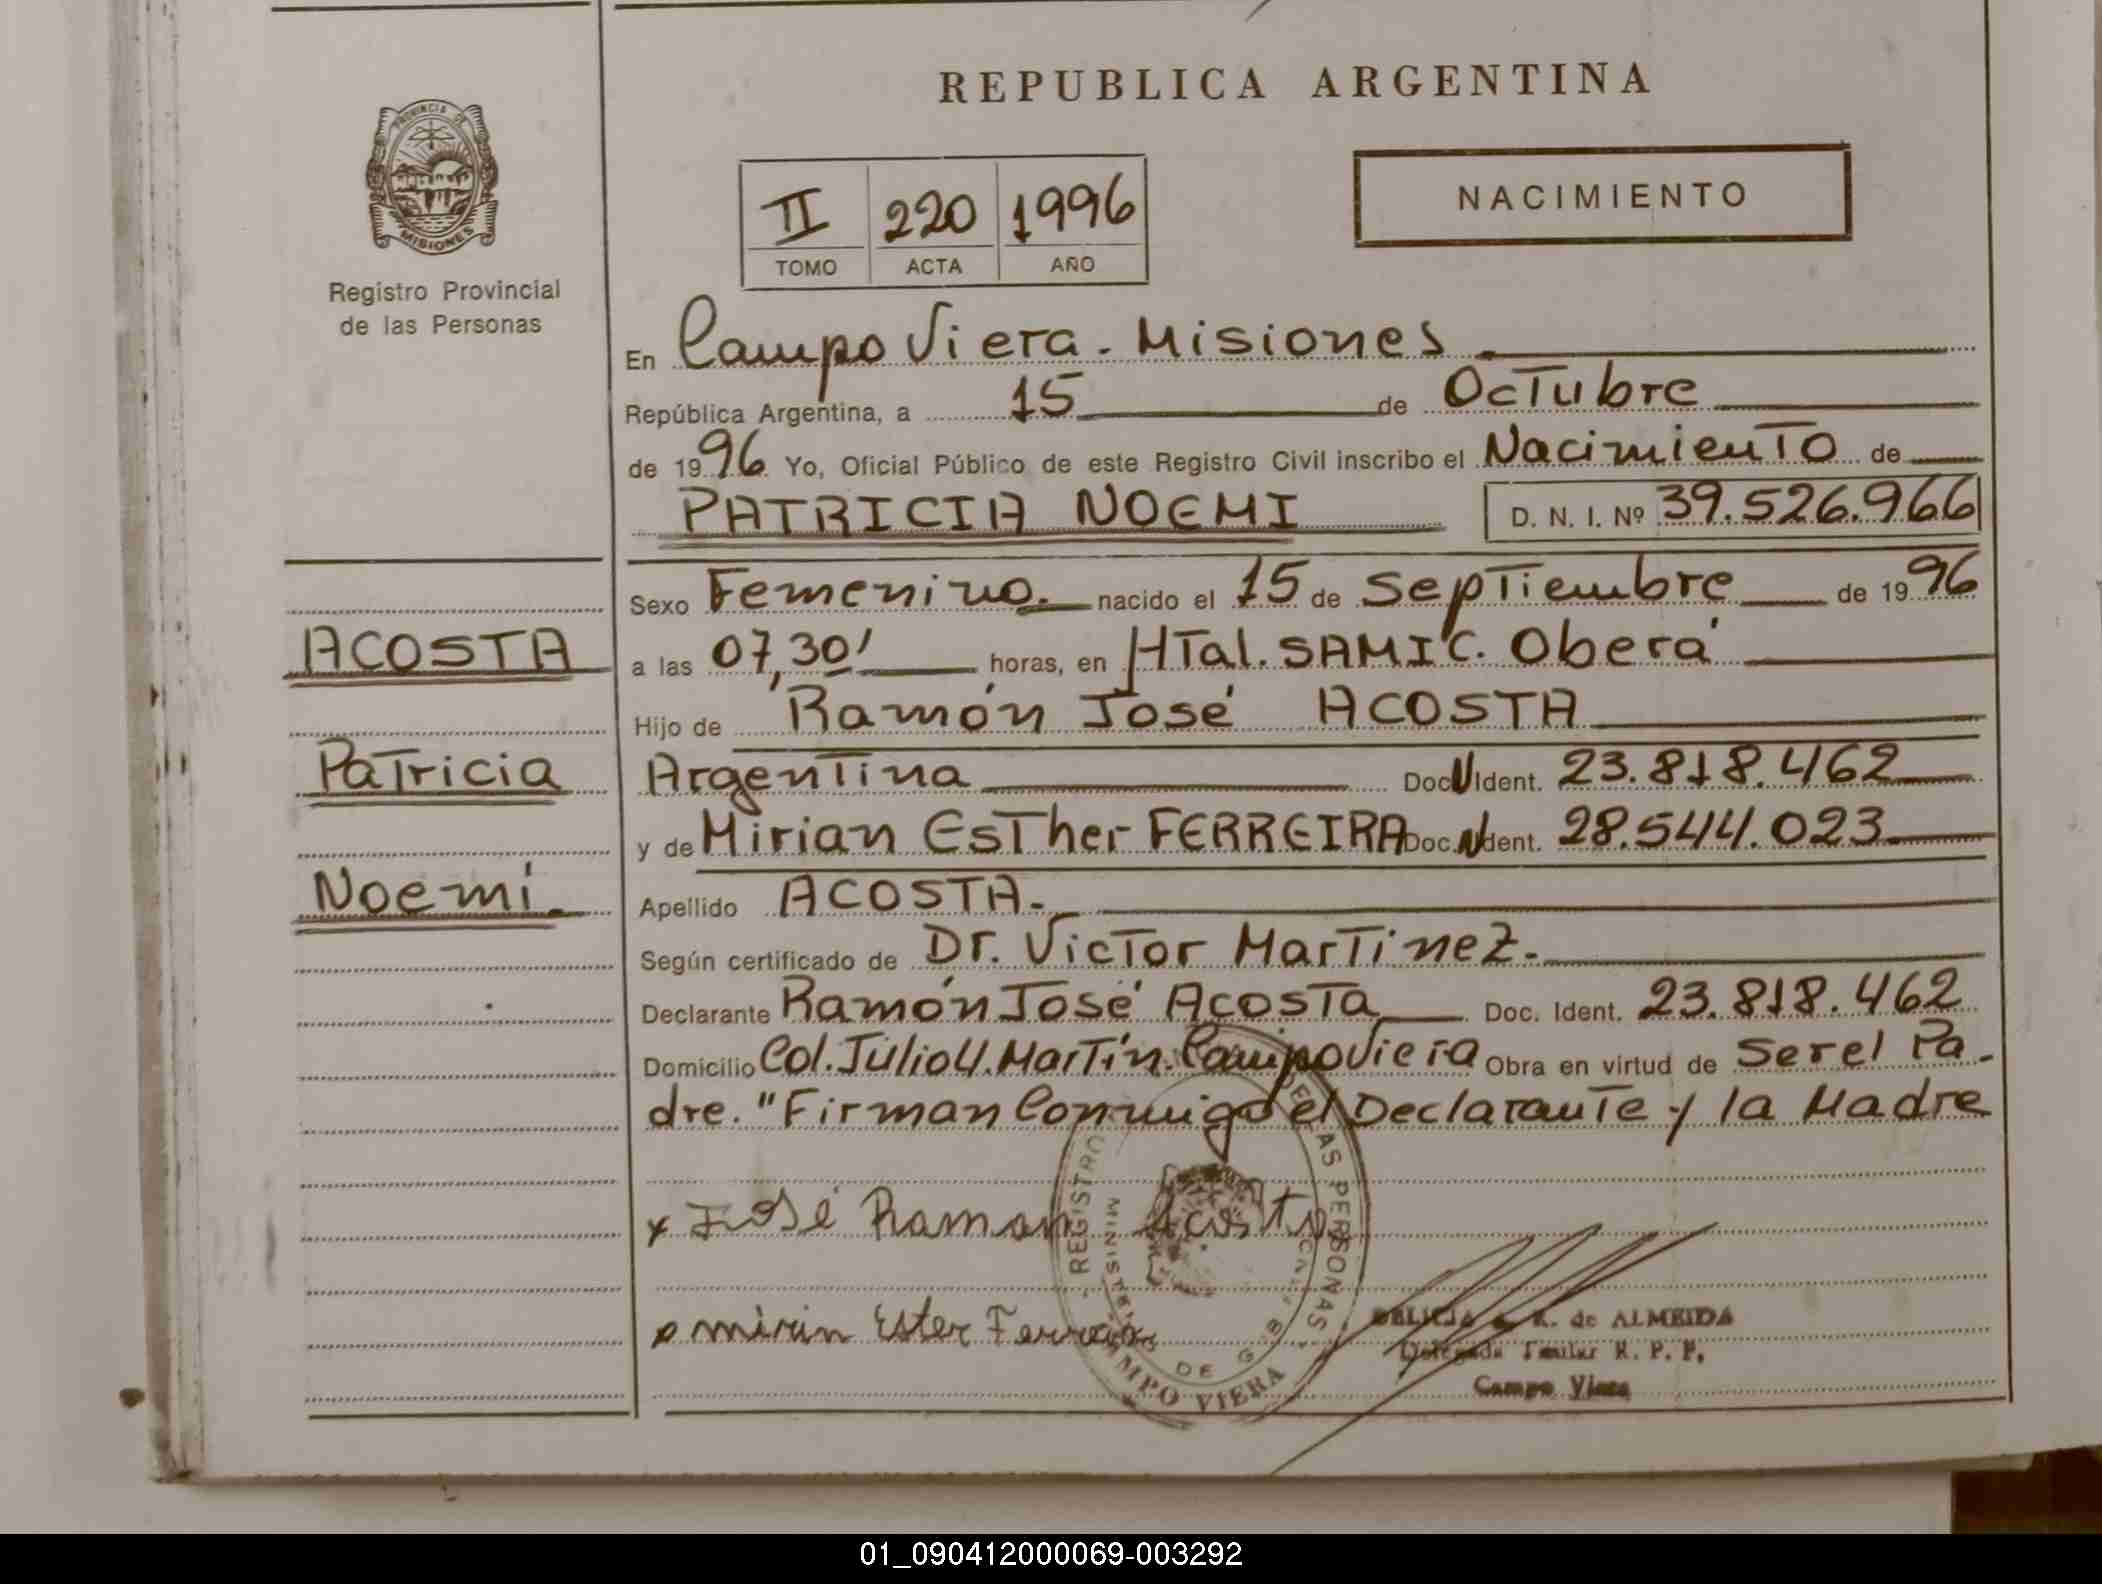 REPUBLICA ARGENTINA
PROVINCIA DE
MISIONES
Registro Provincial
de las Personas
II 220 1996
TOMO ACTA AÑO
NACIMIENTO
En Campo Viera. Misiones
República Argentina, a 15 de Octubre
de 1996 Yo, Oficial Público de este Registro Civil inscribo el Nacimiento de
PATRICIA NOEMI D. N. I. Nº 39.526.966
Sexo Femenino. nacido el 15 de Septiembre de 1996
ACOSTA
a las 07,30' horas, en HTal. SAMIC. Oberá
Hijo de Ramón José ACOSTA
Patricia
Argentina Doc. N Ident. 23.818.462
y de Mirian Esther FERREIRA Doc. N Ident. 28.544.023
Noemí.
Apellido ACOSTA.
Según certificado de Dr. Victor Martinez.
Declarante Ramón José Acosta Doc. Ident. 23.818.462
Domicilio Col. Julio U. Martín. Campo Viera Obra en virtud de Ser el Pa-
dre. "Firman Conmigo el Declarante y la Madre
x José Ramon Acosta
REGISTRO DE LAS PERSONAS
MINISTERIO DE GOB.
CAMPO VIERA
mirin Ester Ferreira
DELICIA K. de ALMEIDA
Delegada Titular R. P. P.
Campo Viera
01_090412000069-003292